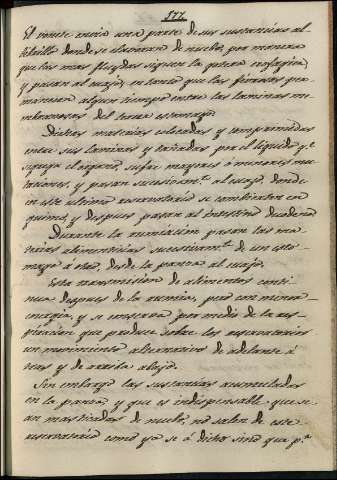 577.
El vientre envia una parte de sus sustancias al
librillo donde se elaboran de nuevo, por manera
que las mas fluydas siguen la gotera esofagica,
y pasan al cuajo, en tanto que las fibrosas per-
manecen algun tiempo entre las laminas me-
mbranosas del tercer estomago.
Dichas materias colocadas y comprimidas
entre sus laminas y bañadas por el liquido q.e
segrega el organo, sufre mayores ó menores mu-
taciones, y pasan sucesivam.te al cuajo, donde
en este ultimo reservatorio se combierten en
quimo, y despues pasan al intestino duodeno.
Durante la rumiacion pasan las ma-
terias alimenticias sucesivam.te de un esto-
mago á otro, desde la panza al cuajo.
Esta transmision de alimentos conti-
nua despues de la rumia, pero con menor
energia, y se conserva por medio de la res-
piracion que produce sobre los reservatorios
un movimiento alternativo de adelante á
tras y de arriba abajo.
Sin embargo las sustancias acumuladas
en la panza y que es indispensable que se-
an masticadas de nuevo, no salen de este
reservatorio como ya se á dicho sino que p.a